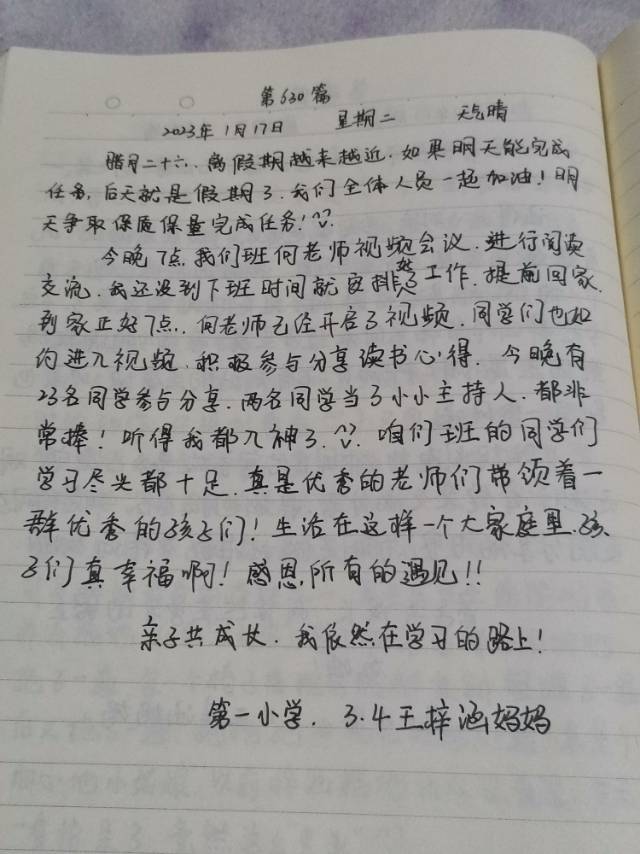 第630篇
2023年1月17日 星期二 天气晴
腊月二十六、离假期越来越近.如果明天能完成
任务,后天就是假期了.我们全体人员一起加油!明
天争取保质保量完成任务!
今晚7点,我们班何老师视频会议.进行阅读
交流.我还没到下班时间就安排工作.提前回家.
到家正好7点.何老师已经开启了视频.同学们也如
约进入视频.积极参与分享读书心得.今晚有
23名同学参与分享.两名同学当了小小主持人.都非
常棒!听得我都入神了.咱们班的同学们
学习尽头都十足.真是优秀的老师们带领着一
群优秀的孩子们!生活在这样一个大家庭里.孩
子们真幸福啊!感恩,所有的遇见!!
亲子共成长.我依然在学习的路上!
第一小学.3.4王梓涵妈妈